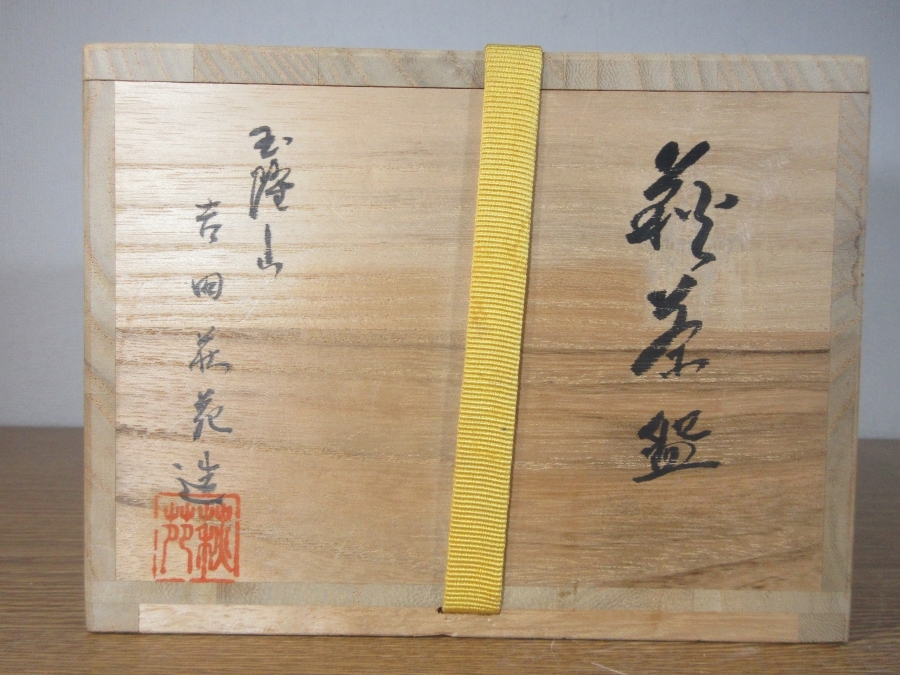 萩茶盌
玉隆山
吉田萩苑造
萩苑